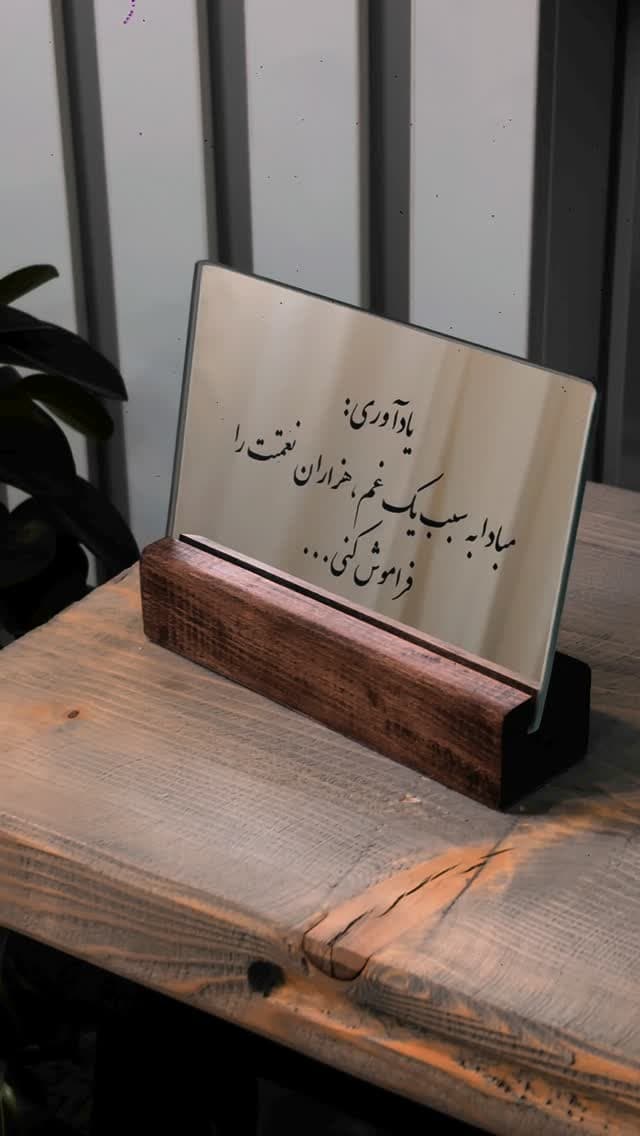 یادآوری:
مبادا به سبب یک غم، هزاران نعمتت را
فراموش کنی...